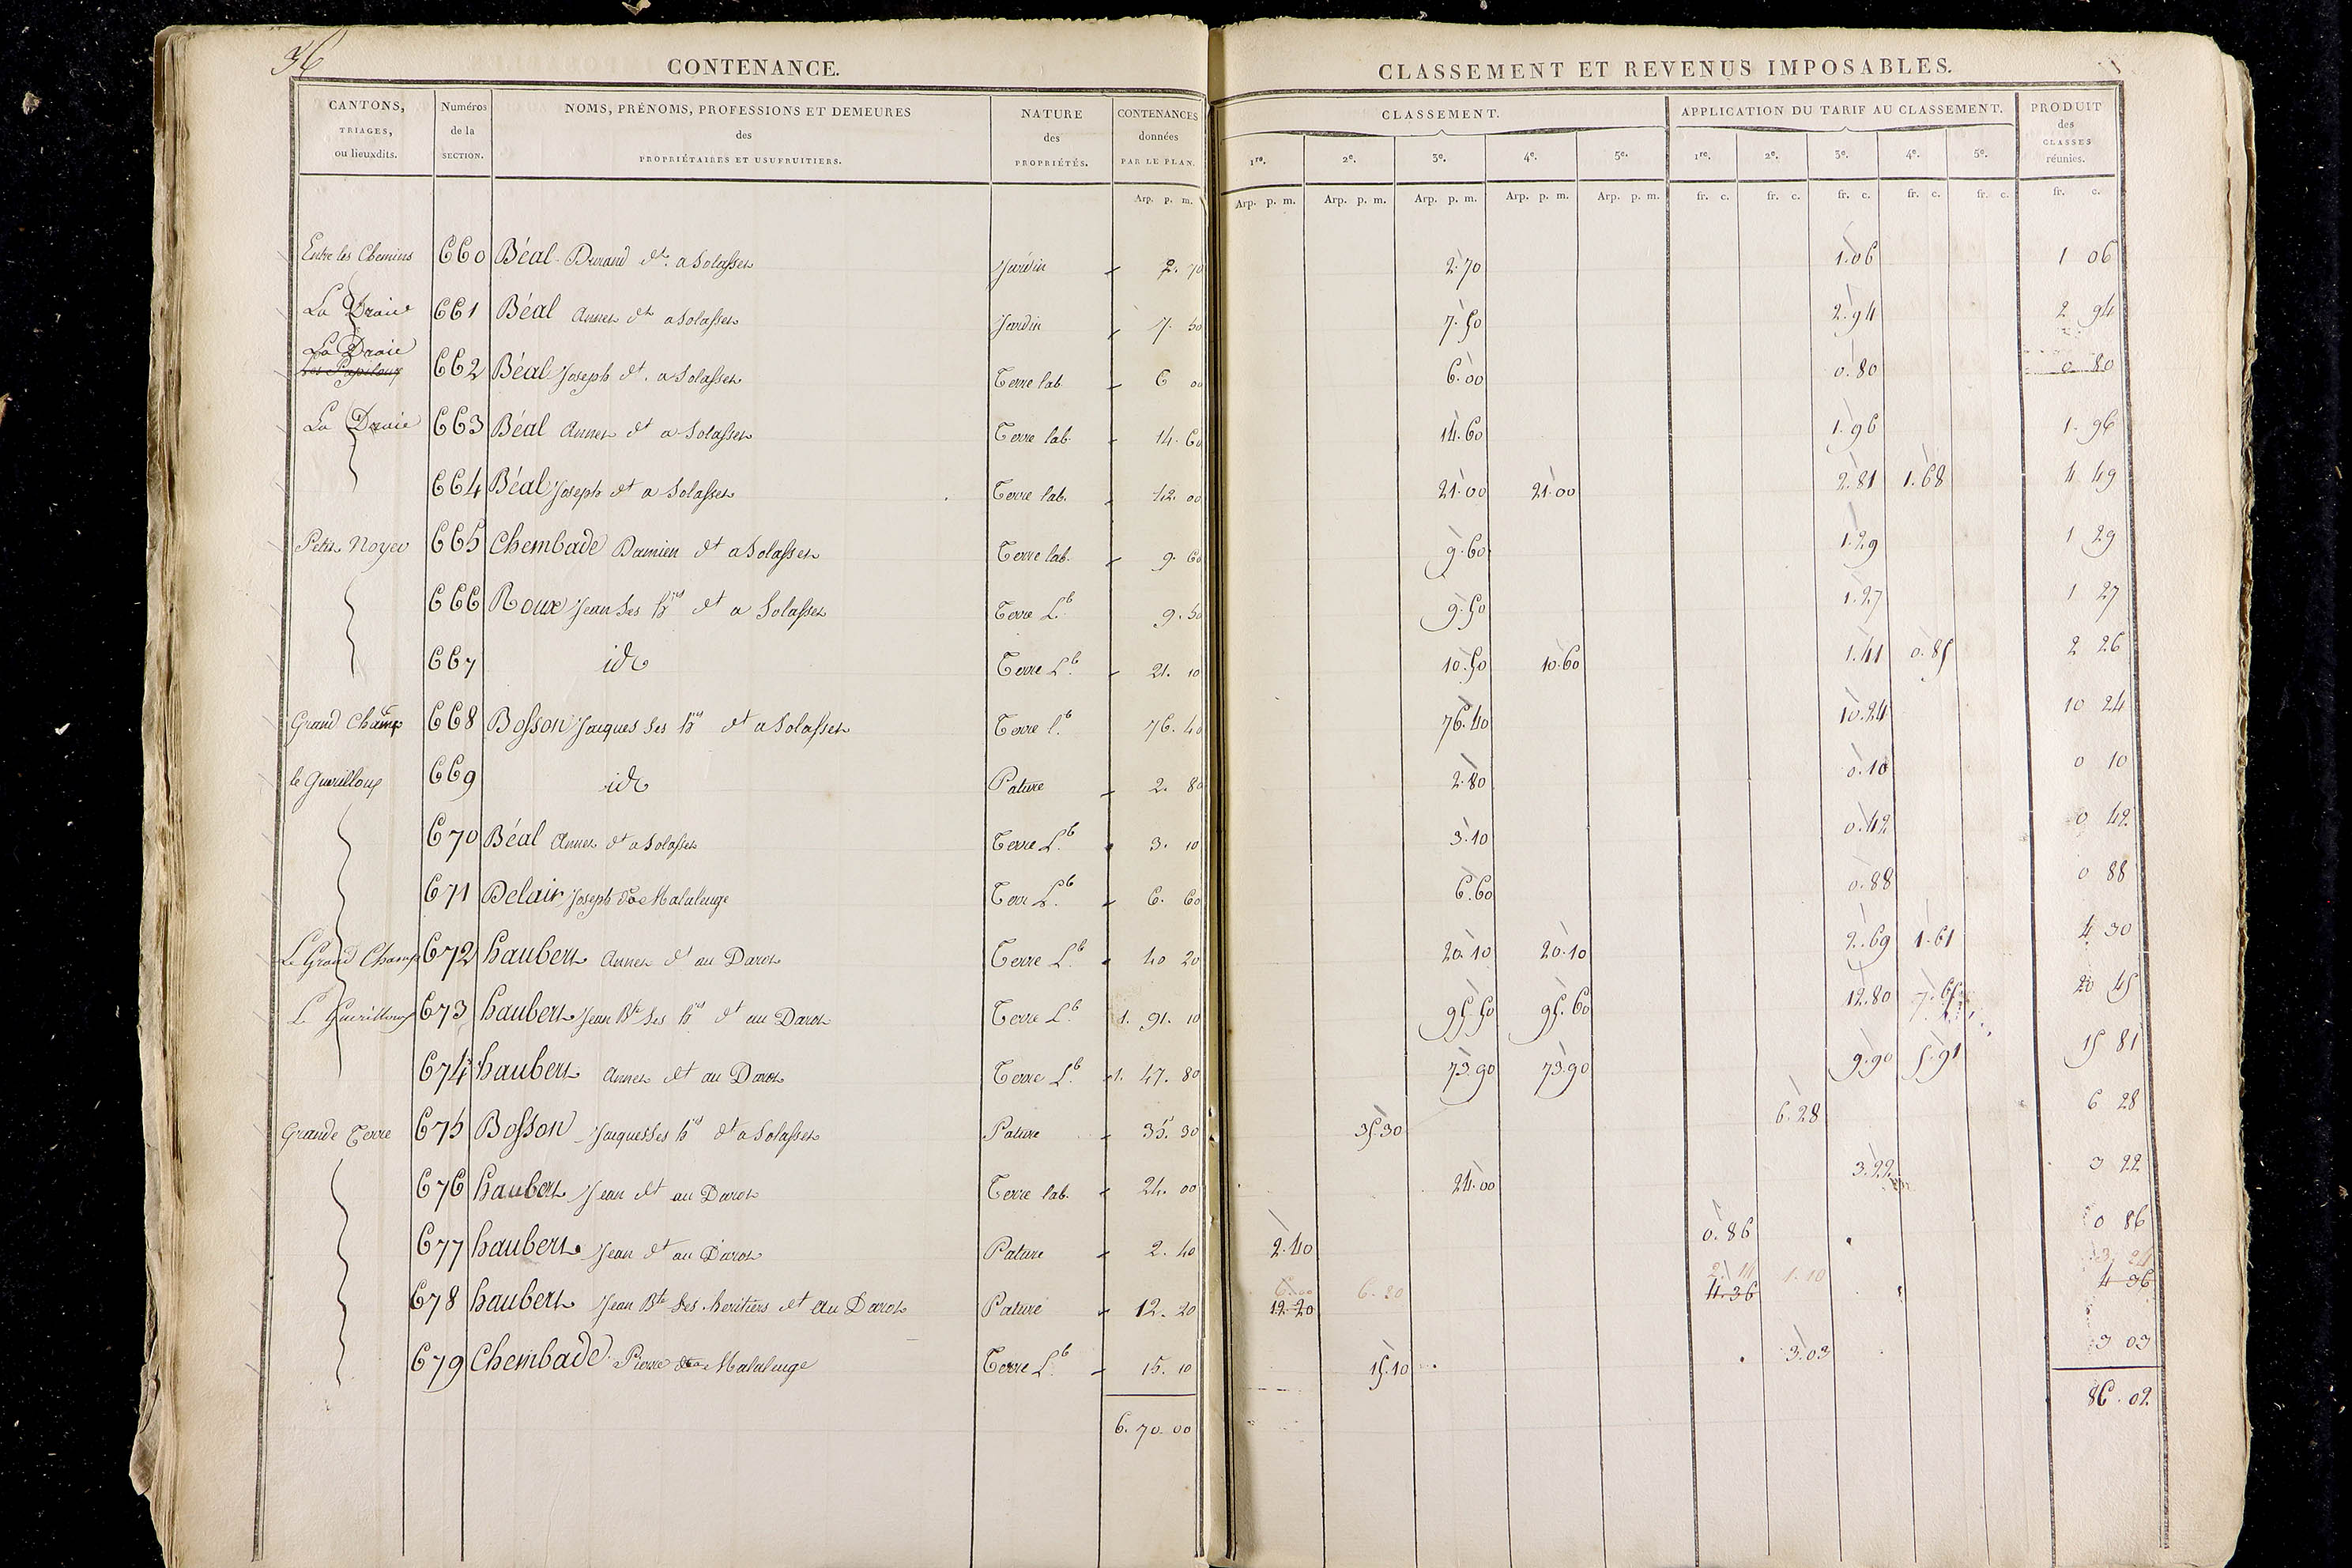 36
CONTENANCE.
CANTONS, TRIAGES, ou lieuxdits. Numéros de la SECTION. NOMS, PRÉNOMS, PROFESSIONS ET DEMEURES des PROPRIÉTAIRES ET USUFRUITIERS. NATURE des PROPRIÉTÉS. CONTENANCES données PAR LE PLAN.
Arp. p. m.
CLASSEMENT ET REVENUS IMPOSABLES.
CLASSEMENT. APPLICATION DU TARIF AU CLASSEMENT. PRODUIT des CLASSES réunies.
1re. 2e. 3e. 4e. 5e. 1re. 2e. 3e. 4e. 5e.
Arp. p. m. Arp. p. m. Arp. p. m. Arp. p. m. Arp. p. m. fr. c. fr. c. fr. c. fr. c. fr. c. fr. c.
Entre les Chemins 660 Béal Durand dt. a Solasset Jardin 2. 70 2.70 1.06 1 06
La Draie 661 Béal Annet dt a Solasset Jardin 7. 50 7.50 2.94 2 94
La Draie
662 Béal Joseph dt. a Solasset Terre lab 6 00 6.00 0.80 0 80
La Draie 663 Béal Annet dt a Solasset Terre lab. 14. 60 14.60 1.96 1. 96
664 Béal Joseph dt a Solasset Terre lab. 42. 00 21.00 21.00 2.81 1.68 4 49
Petit Noyer 665 Chembade Damien dt a Solasset Terre lab. 9. 60 9.60 1.29 1 29
666 Roux Jean Ses hrs dt a Solasset Terre Lb. 9. 50 9.50 1.27 1 27
667 id Terre Lb. 21. 10 10.50 10.60 1.41 0.85 2 26
Grand Champ 668 Bosson Jacques Ses hrs dt a Solasset Terre lb. 76. 40 76.40 10.24 10 24
le Guerilloux 669 id Pature 2. 80 2.80 0.10 0 10
670 Béal Annet dt a Solasset Terre Lb. 3. 10 3.10 0.42 0 42
671 Delair Joseph Malaleuge Terre Lb. 6. 60 6.60 0.88 0 88
Le Grand Champ 672 haubert Annet dt au Darot Terre Lb. 40 20 20.10 20.10 2.69 1.61 4 30
Le Guerilloux 673 haubert Jean Bte Ses hrs dt au Darot Terre Lb. 1. 91. 10 95.50 95.60 12.80 7.65 20 45
674 haubert Annet dt au Darot Terre Lb. 1. 47. 80 73.90 73.90 9.90 5.91 15 81
Grande Terre 675 Bosson Jacques Ses hrs dt a Solasset Pature 35. 30 35.30 6.28 6 28
676 haubert Jean dt au Darot Terre lab. 24. 00 24.00 3.22 3 22
677 haubert Jean dt au Darot Pature 2. 40 2.40 0.86 0 86
6.00 6.20 2.14 1.10 3 24
678 haubert Jean Bte Ses heritiers dt au Darot Pature 12. 20 12.20 4.36 4 36
679 Chembade Pierre Malaleuge Terre Lb. 15. 10 15.10 3.03 3 03
6. 70. 00 86. 02